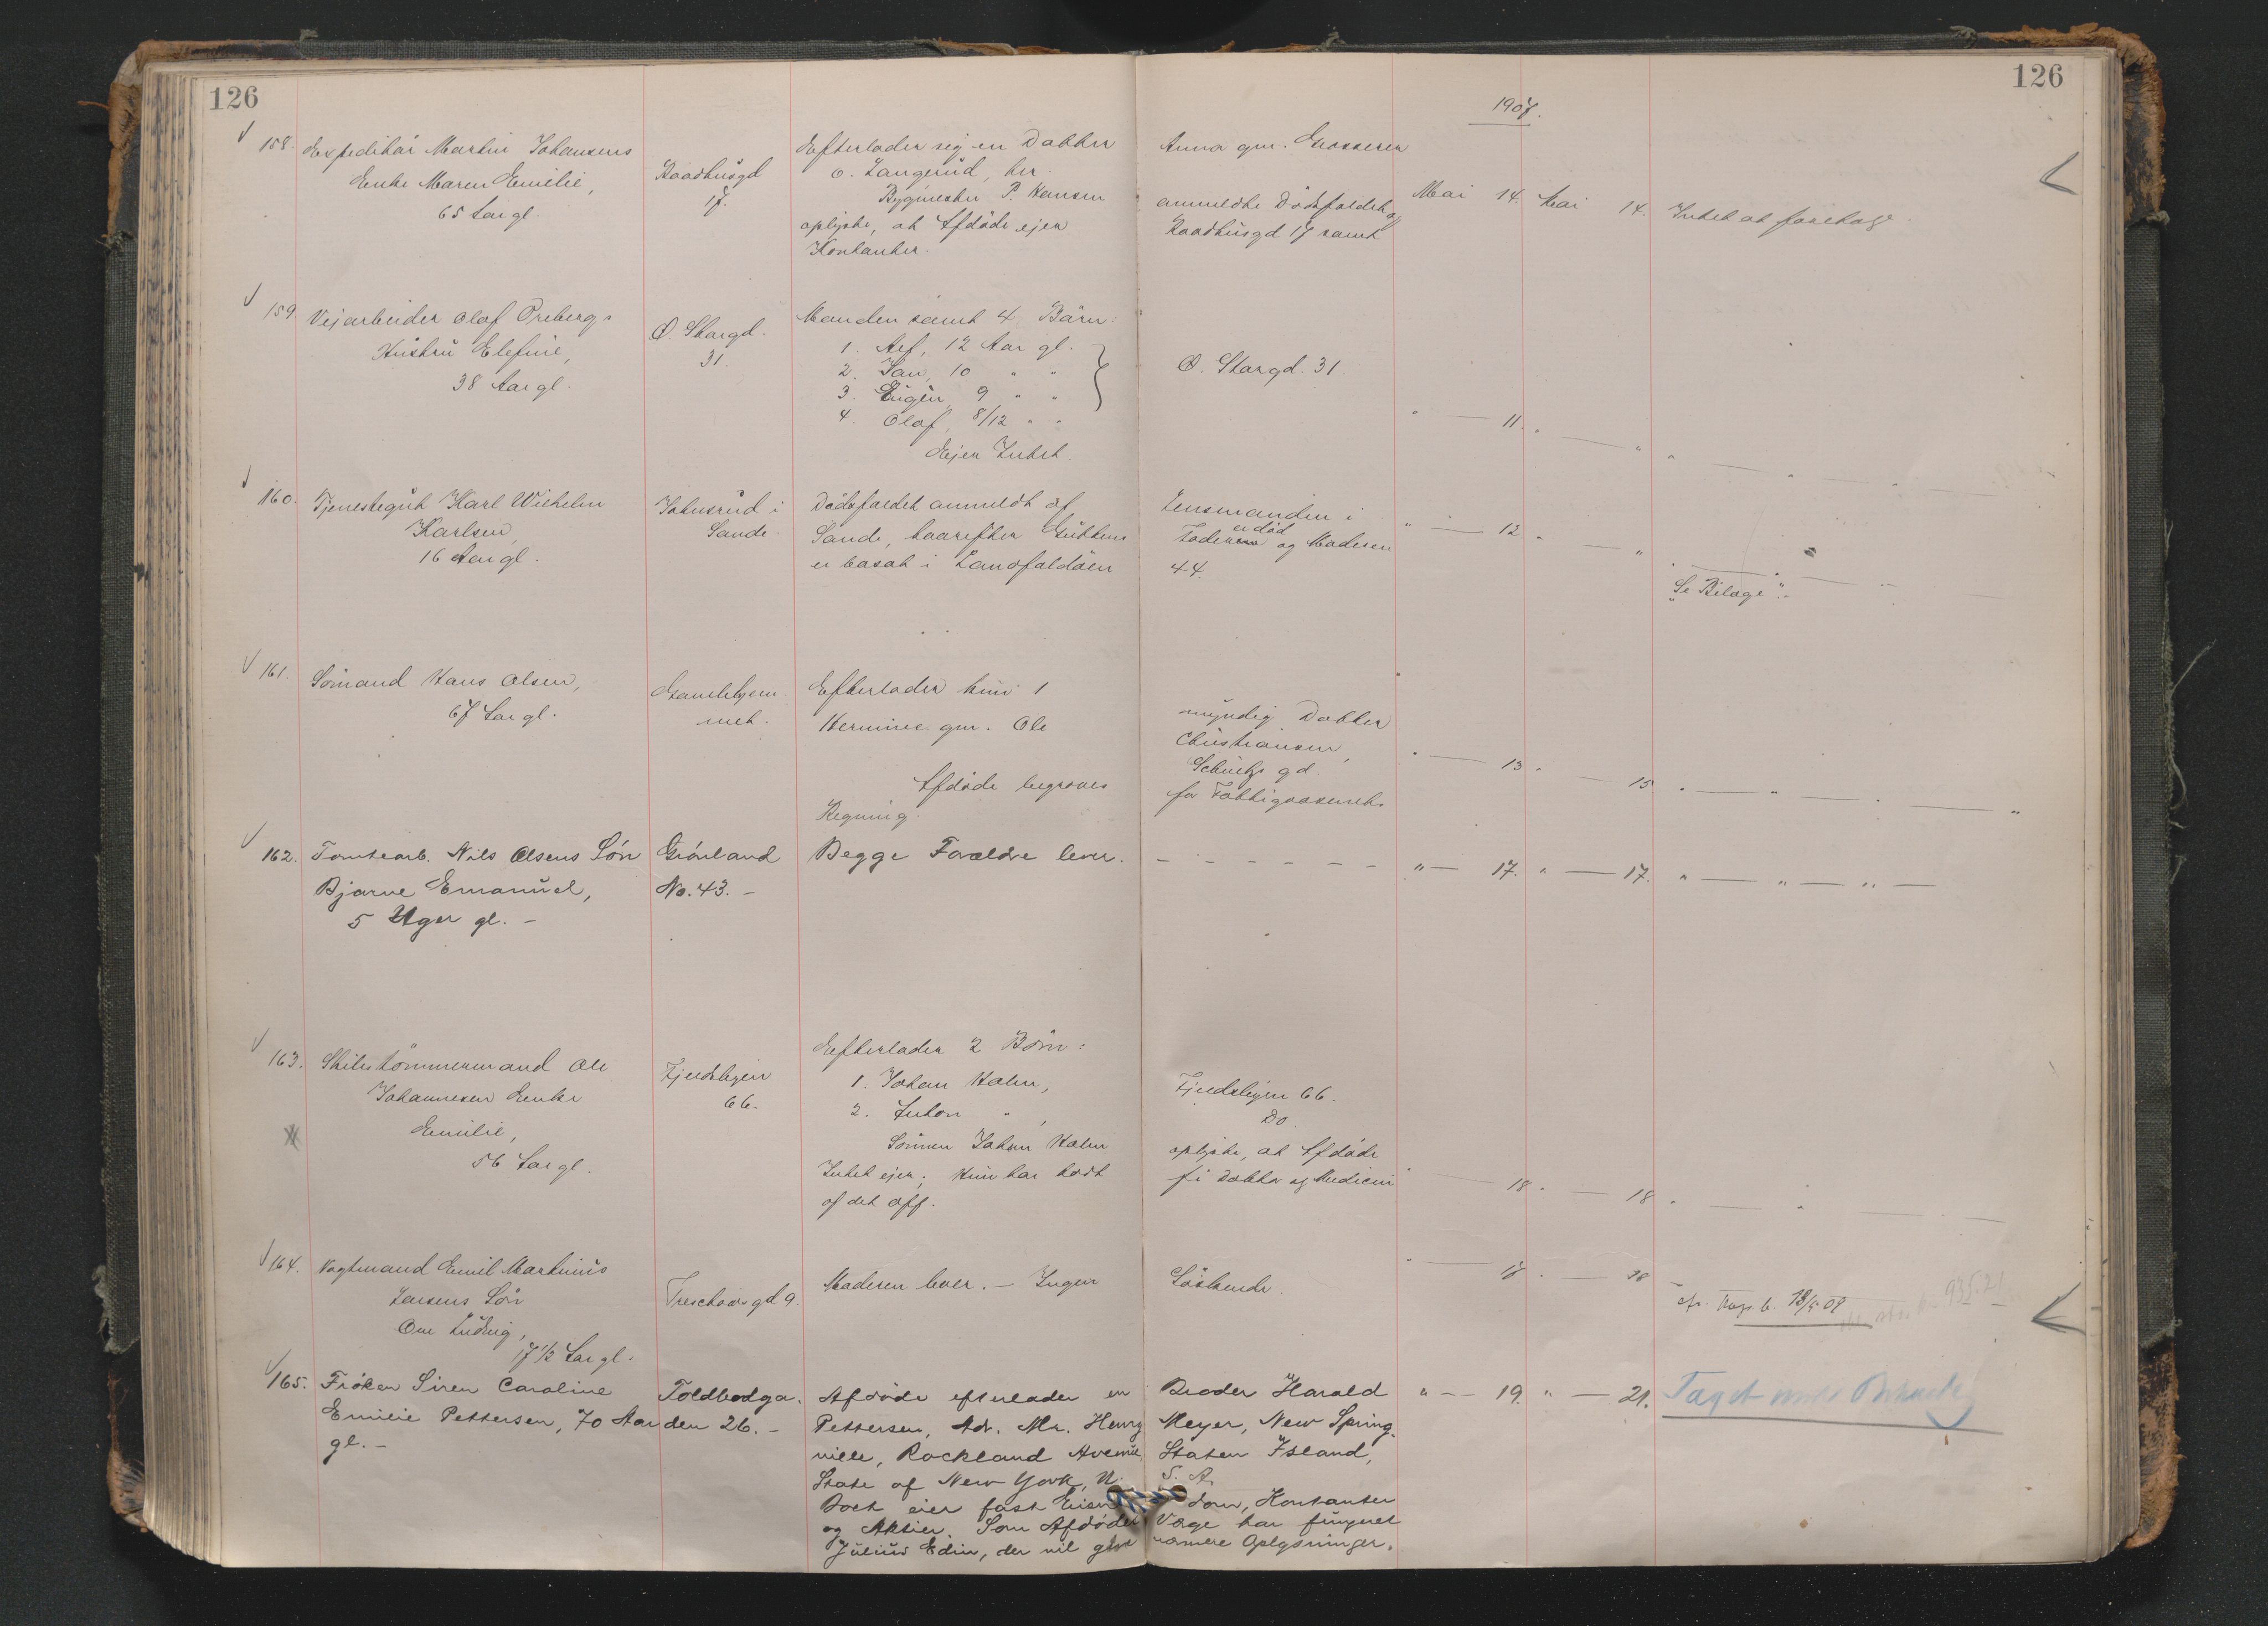 126
126
1907.
158. Expeditør Martin Johansens
Enke Maren Emilie,
65 Aar gl.
Raadhusgd
17.
Efterlader sig en Datter Anna gm. Grosserer
O. Langerud, her.
Bygmester P. Hansen anmeldte Dødsfaldet og
oplyste, at Afdøde ejer Raadhusgd 17 samt
Kontanter.
Mai 14. Mai 14. Intet at foretage.
159. Vejarbeider Olaf Prebergs
Hustru Elefine,
38 Aar gl.
Ø. Storgd.
31.
Manden samt 4 Børn:
1. Alf, 12 Aar gl.
2. Jan, 10 " "
3. Eugèn, 9 " "
4. Olaf, 8/12 " "
Ø. Storgd. 31.
Ejer Intet.
" — 11. " — "
160. Tjenestegut Karl Wilhelm
Karlsen,
16 Aar gl.
Johnsrud i
Sande.
Dødsfaldet anmeldt af Lensmanden i
Sande, hvorefter Guttens Fader er død og Moderen
er bosat i Landfaldøen 44.
" — 12 " — "
"Se Bilage".
161. Sømand Hans Olsen,
67 Aar gl.
Gamlehjem-
met.
Efterlader kun 1 myndig Datter
Hermine gm. Ole Christiansen,
Schultz gd.
Afdøde begraves for Fattigvæsenets
Regning.
" — 13 " — 15 " — " — " — "
162. Tomtearb. Nils Olsens Søn
Bjarne Emanuel,
5 Uger gl. –
Grønland
No. 43. –
Begge Forældre lever. – – – – – –
" — 17. " — 17. " — " — " —
163. Skibstømmermand Ole
Johannesen Enke
Emilie,
56 Aar gl.
Tjeldsbyen
66.
Efterlader 2 Børn:
1. Johan Holm, Tjeldsbyen 66.
2. Anton " , Do.
Sønnen Johan Holm oplyste, at Afdøde
Intet ejer; Hun har havt fri Doktor og Medicin
af det off.
" — 18. " — 18 " — " —
164. Vagtmand Emil Martinius
Jensens Søn
Ove Ludvig,
17 1/2 Aar gl.
Treschows gd 9.
Moderen lever. — Ingen Søskende.
" — 18. " — 18
cfr. Kop. b. 13/5 08
935.21
165. Frøken Siren Caroline
Emilie Pettersen, 70 Aar
gl. –
Toldbodga-
den 26. –
Afdøde efterlader en Broder Harald
Pettersen, Adr. Mr. Henry Meyer, New Spring-
ville, Rockland Avenue, Staten Island,
State of New York, U. S. A.
Boet eier fast Eiendom, Kontanter
og Aktier. Som Afdødes Værge har fungeret
Julius Edin, der vil give nærmere Oplysninger.
" — 19. " — 21. Taget under